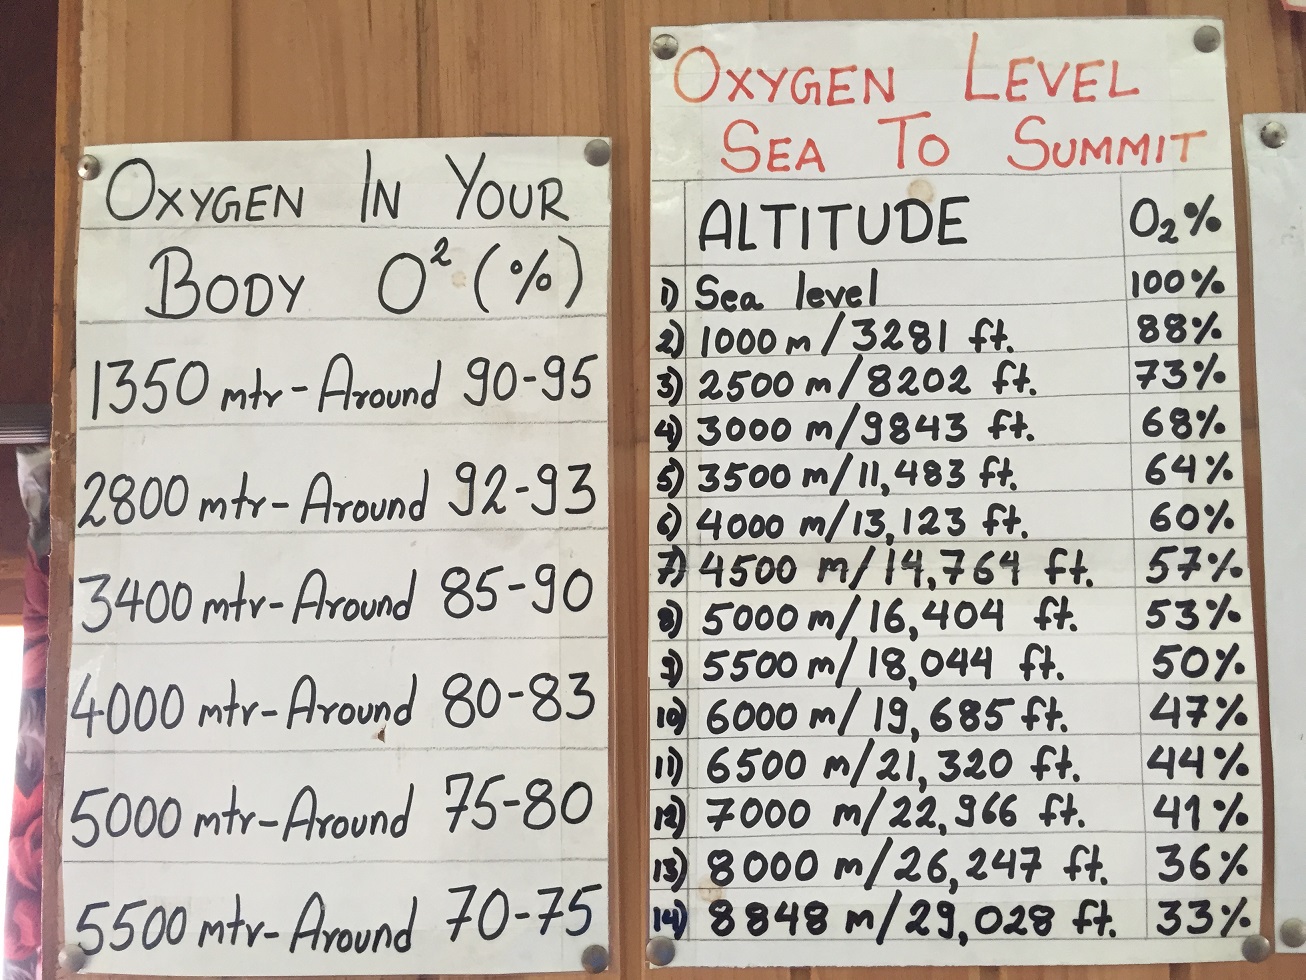 OXYGEN IN YOUR
BODY O² (%)
1350 mtr-Around 90-95
2800 mtr-Around 92-93
3400 mtr-Around 85-90
4000 mtr-Around 80-83
5000 mtr-Around 75-80
5500 mtr-Around 70-75
OXYGEN LEVEL
SEA TO SUMMIT
ALTITUDE O₂%
1) Sea level 100%
2) 1000 m/3281 ft. 88%
3) 2500 m/8202 ft. 73%
4) 3000 m/9843 ft. 68%
5) 3500 m/11,483 ft. 64%
6) 4000 m/13,123 ft. 60%
7) 4500 m/14,764 ft. 57%
8) 5000 m/16,404 ft. 53%
9) 5500 m/18,044 ft. 50%
10) 6000 m/19,685 ft. 47%
11) 6500 m/21,320 ft. 44%
12) 7000 m/22,966 ft. 41%
13) 8000 m/26,247 ft. 36%
14) 8848 m/29,028 ft. 33%